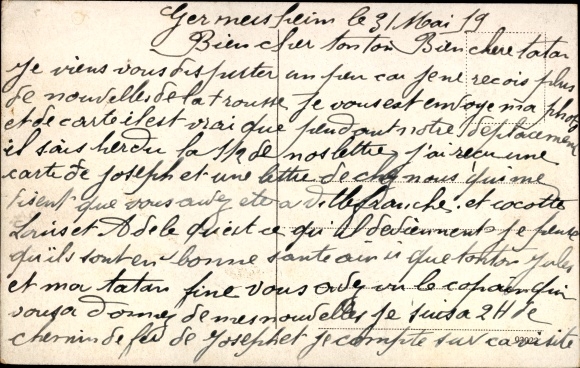 Germersheim le 31 Mai 19
Bien cher tonton Bien chere tatan
Je viens vous disputer un peu car je ne recois plus
de nouvelles de la trousse je vous est envoye ma photo
et de carte il est vrai que pendant notre deplacement
il sais perdu la 1/2 de nos lettre j'ai recu une
carte de Joseph et une lettre de chez nous qui me
disent que vous avez ete a villefranche. et cocotte
Louis et Adele qu'est ce qu'il deviennent je pense
qu'ils sont en bonne sante ainsi que tonton Jules
et ma tatan fine vous avez vu le copain qui
vous a donnez de mes nouvelles je suis a 2H de
chemin de fer de Joseph et je compte sur ca visite